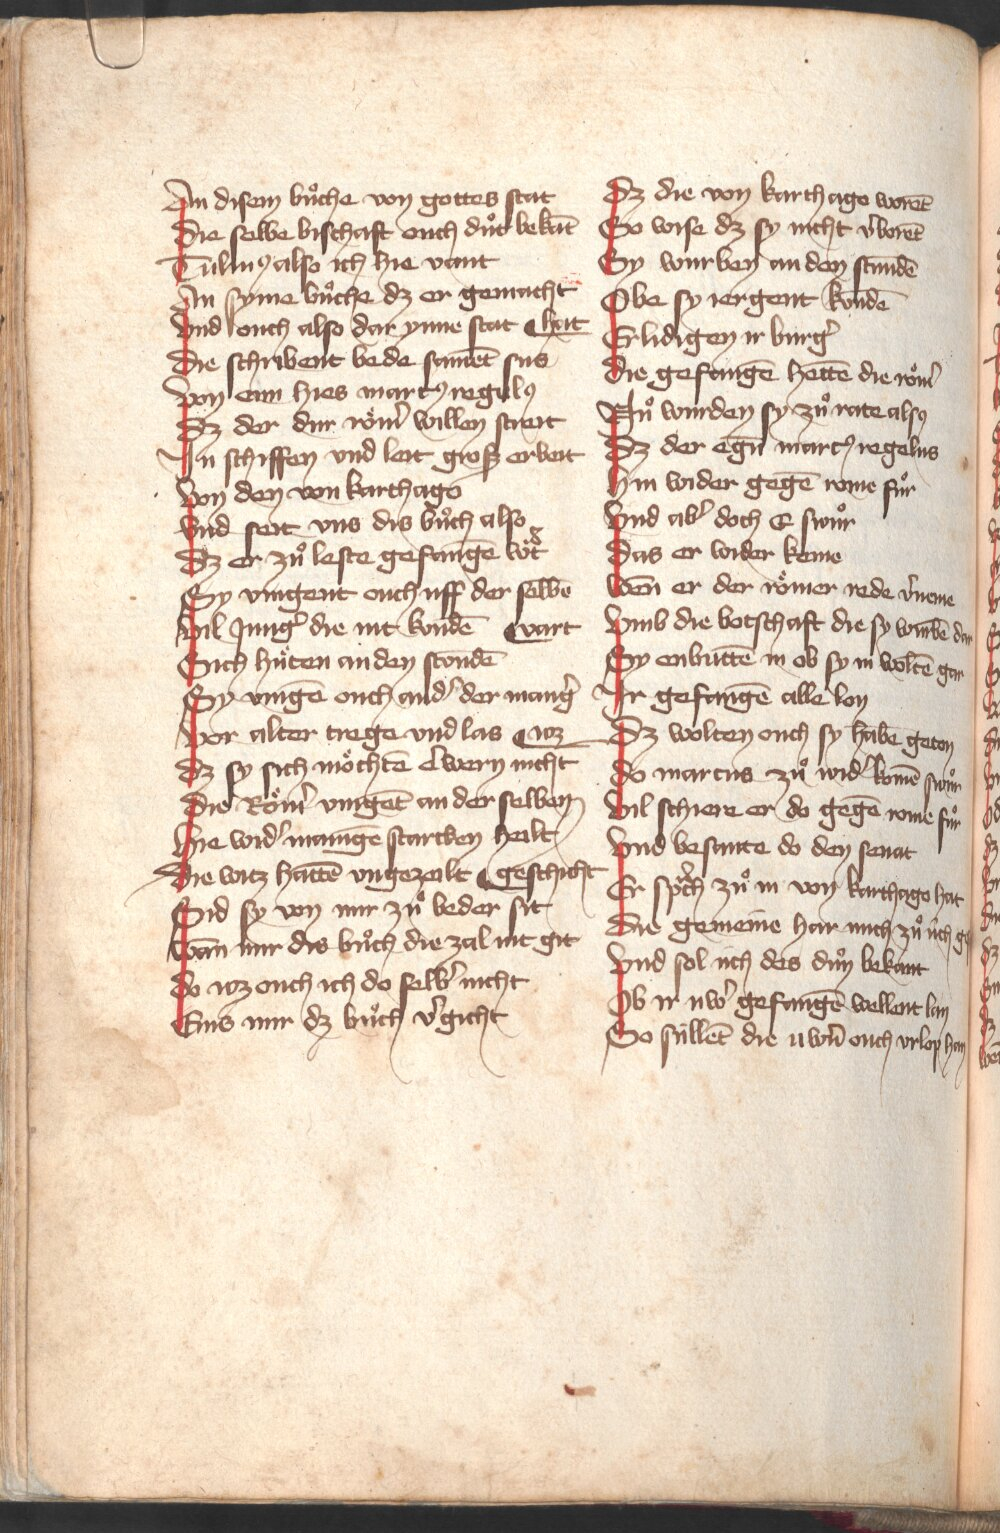 An disem bůche von gottes stat
Die selbe bischaft ouch důt bekāt
Tulliꝰ also ich hie vant
An syme bůche dz er gemacht
Vnd ouch also dar ynne stat hat
Die schribent bede samēt sus
Von eim hies marcꝰ regulꝰ
Dz der dur röm̄ willen streit
In schiffen vnd leit gross erbeit
Von den von karthago
Vnd seit vns dis bůch also
Dz er zů leste gefangē
Sy vingent ouch uff der selbē
Vil Jungˀ die nit kondē vart
Sich hůten an den stondē
Sy vingē ouch andˀ der mangˀ
Vor alter trege vnd las wz
Dz sy sich möchtē erwern nicht
Die Römˀ vingēt an der selben
Hie widˀ manigē starcken heilt
Die witz hattē vngezeilt geschicht
Sid sy von mir zů beder sit
Wan mir dis bůch die zal nit git
Do wz ouch ich do selbˀ nicht
Eins mir dz bůch vˀgicht
Dz die von karthago worēt
So wise dz sy nicht vˀborēt
Sy wurben an den stundē
Obe sy iergent kondē
Erlidigen ir burgˀ
Die gefangē hettē die römˀ
Nů wurden sy zů rate alsꝰ
Dz der egn̄ marcꝰ regelus
Hin wider gegē rome fůr
Vnd abˀ doch E swůr
Das er wider keme
Wen er der römer rede vˀneme
Vmb die botschaft die sy wurbē dar
Sy enbuttē in ob sy in woltē gar
Ir gefangē alle lon
Dz wolten ouch sy habē geton
Do marcus zů widˀ komē swůr
Vil schiere er do gegē rome fůr
Vnd besante do den senat
Er sprͣch zů in von karthago hat
Die gemeine har mich zů ůch
Vnd sol ůch des důn bekant
Ob ir uwˀ gefangē wellent lan
So süllēt die uwˀn ouch vrlop han